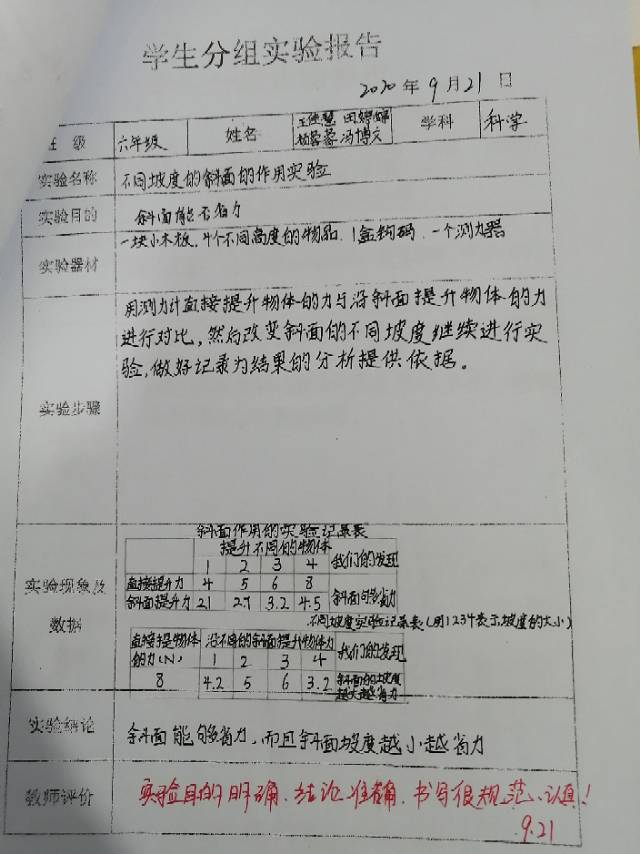 学生分组实验报告
2020年9月21日
班 级 六年级 姓名 学科 科学
冯博文
实验名称 不同坡度的斜面的作用实验
实验目的 斜面能否省力
实验器材 一块小木板、4个不同高度的物品、1盒钩码、一个测力器
实验步骤
用测力计直接提升物体的力与沿斜面提升物体的力
进行对比,然后改变斜面的不同坡度,继续进行实
验,做好记录为结果的分析提供依据。
实验现象及数据
斜面作用的实验记录表
提升不同的物体 我们的发现
1 2 3 4
直接提升力 4 5 6 8 斜面能够省力
斜面提升力 2.1 2.7 3.2 4.5
不同坡度实验记录表(用1234表示坡度的大小)
直接提物体的力(N) 沿不同的斜面提升物体力 我们的发现
1 2 3 4
8 4.2 5 6 3.2 斜面的坡度
越大越省力
实验结论 斜面能够省力,而且斜面坡度越小越省力
教师评价 实验目的明确、结论准确、书写很规范、认真!
9.21